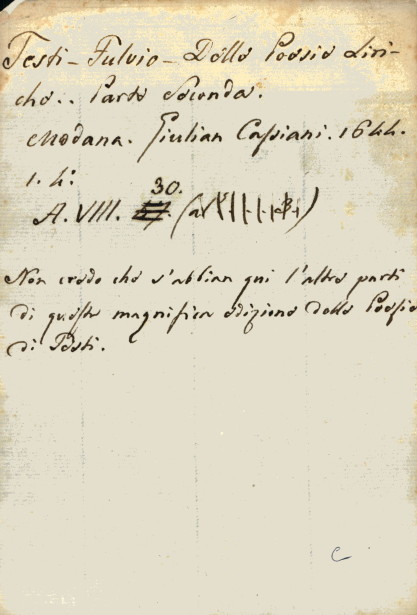 Testi - Fulvio - Delle Poesie Liri-
che.. Parte Seconda.
Modana. Giulian Cassiani. 1644.
1. 4:
30.
A. VIII.
Non credo che s'abbian qui l'altre parti
di queste magnifica edizione delle Poesie
di Testi.
C